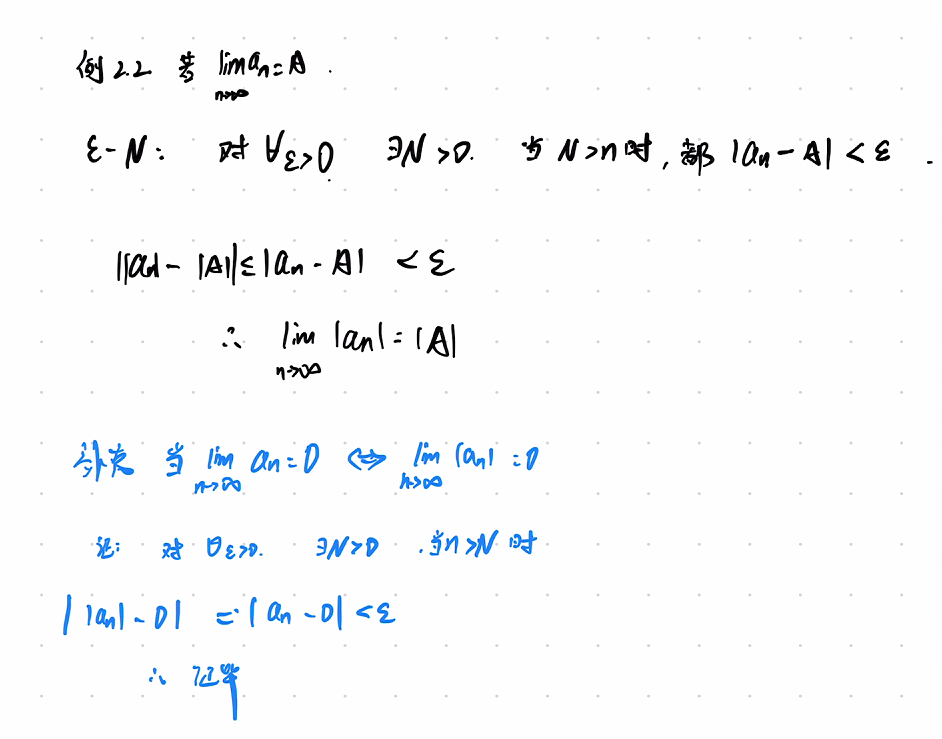 例2.2 若 lim_{n→∞} aₙ = A .
ε-N: 对 ∀ε>0 ∃N>0. 当 N>n时, 都 |aₙ - A| < ε .
||aₙ| - |A|| ≤ |aₙ - A| < ε
∴ lim_{n→∞} |aₙ| = |A|
当 lim_{n→∞} aₙ = 0 ⇔ lim_{n→∞} |aₙ| = 0
证: 对 ∀ε>0. ∃N>0 . 当n>N 时
| |aₙ| - 0| = | aₙ - 0| < ε
∴ 证毕